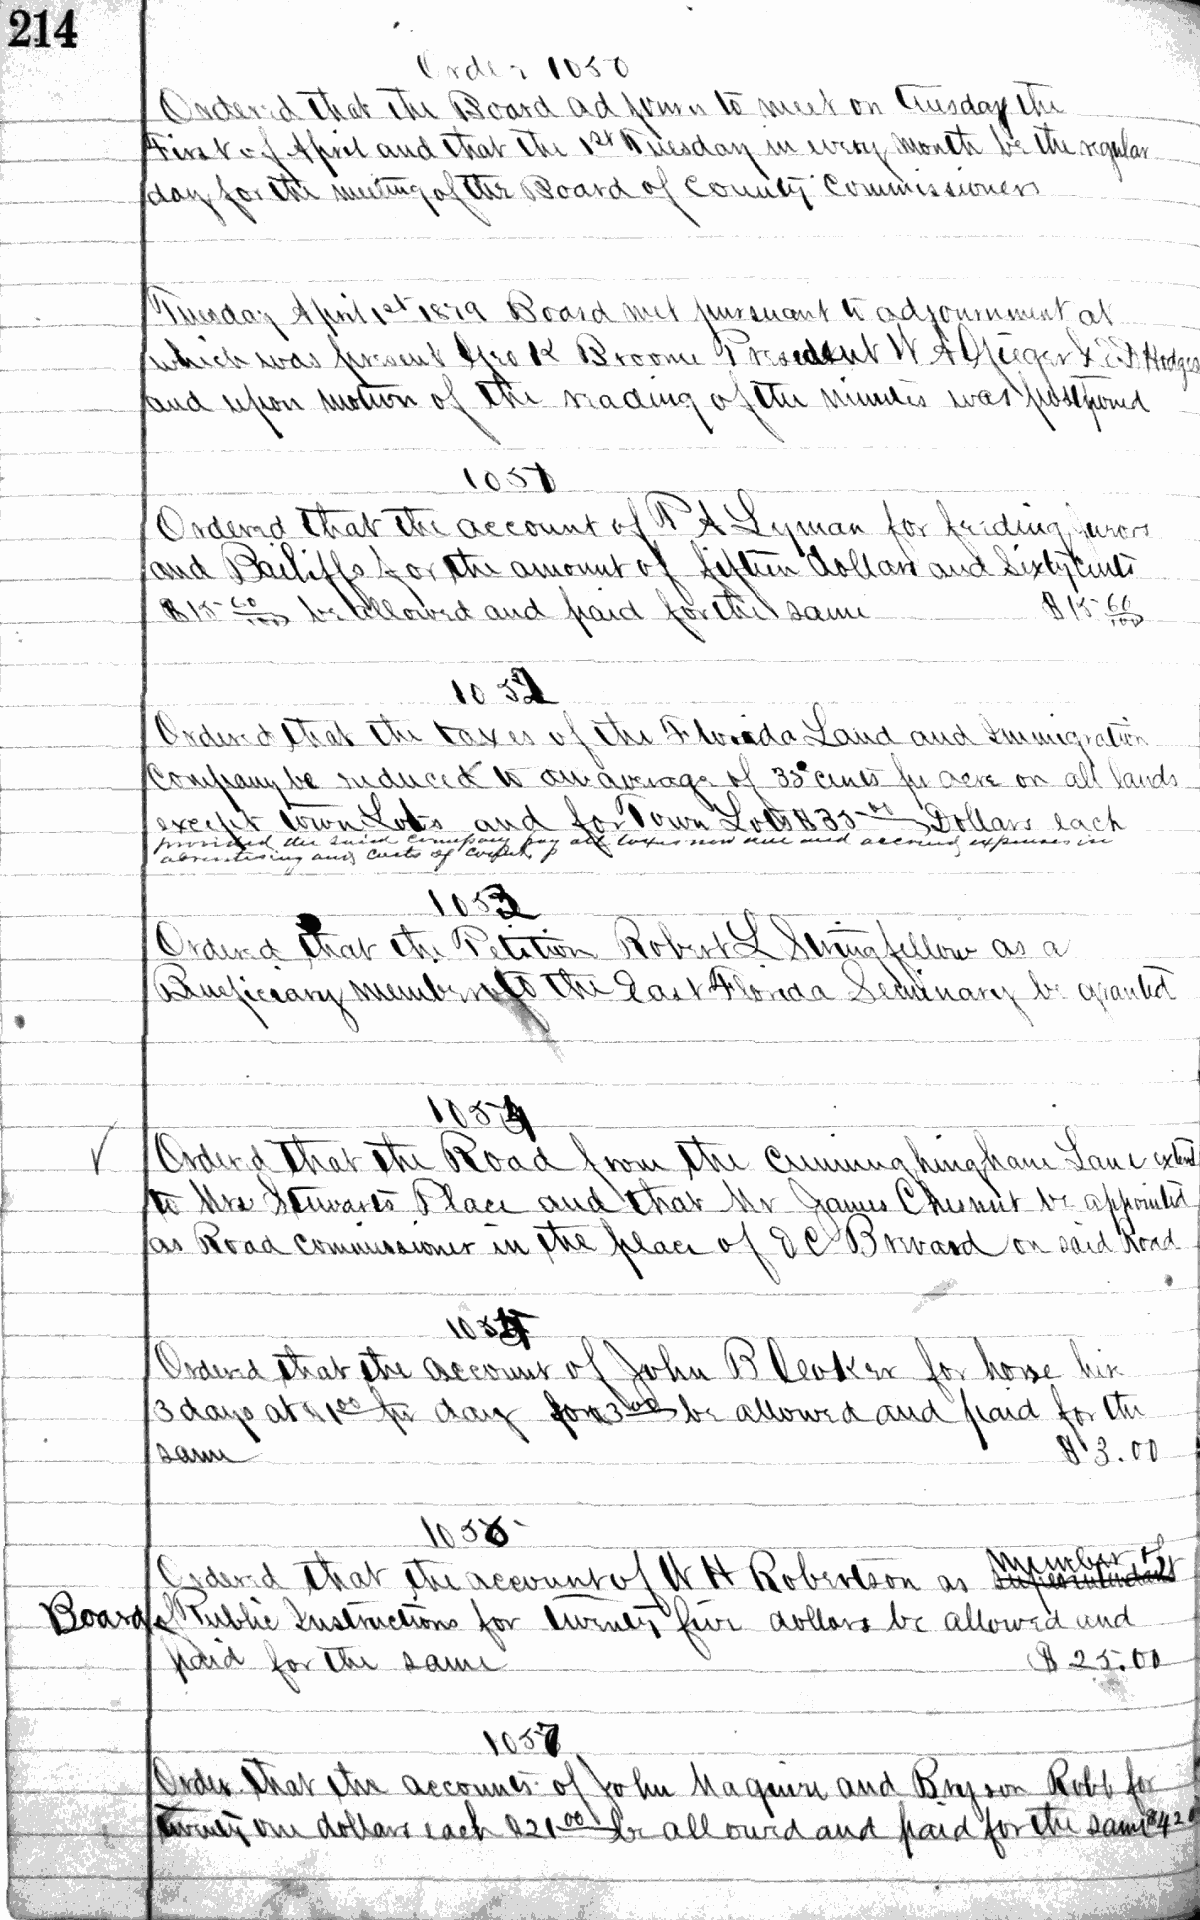 214
Order 1050
Ordered that the Board adjourn to meet on Tuesday the
First of April and that the 1st Tuesday in every month be the regular
day for the meeting of the Board of County Commissioners
Tuesday April 1st 1879 Board met pursuant to adjournment at
which was present Geo K Broome President W A Geiger & Hodges
and upon motion of the reading of the minutes was postponed
1051
Ordered that the account of P A Lyman for feeding jurors
and Bailiffs for the amount of fifteen dollars and Sixty cents
$15 60/100 be allowed and paid for the same $15 60/100
1052
Ordered that the taxes of the Florida Land and Immigration
Company be reduced to an average of 35 cents per acre on all lands
except Town Lots and for Town Lots $35 00 Dollars each
provided the said company pay all taxes now due and accrued expenses in
advertising and costs of court
1053
Ordered that the Petition Robert L Stringfellow as a
Beneficiary member to the East Florida Seminary be granted
1054
Ordered that the Road from the Cunninghingham Lane extend
to Mrs Stewarts Place and that Mr James Chesnut be appointed
as Road Commissioner in the place of E C Brevard on said Road
1055
Ordered that the account of John B for horse hire
3 days at $1 00 per day for $3 00 be allowed and paid for the
same $3.00
1056
Ordered that the account of W H Robertson as Member of Superintendent
Board of Public Instructions for twenty five dollars be allowed and
paid for the same $25.00
1057
Order that the accounts of John Maguire and Bryson Robb for
twenty one dollars each $21 00 be allowed and paid for the same $42